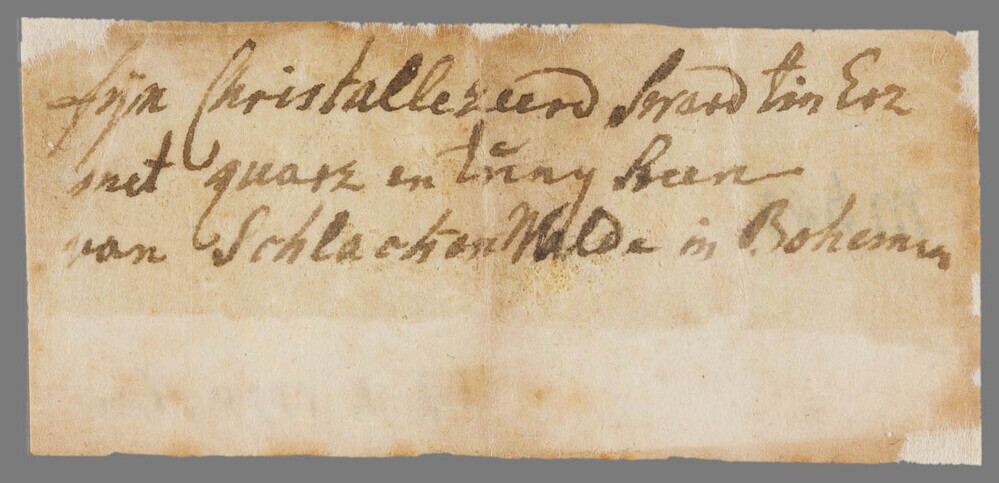 fijn Christallezeerd Swart tin Erz
met quarz en tŭnny steen
van SchlackenWalde in Bohemen